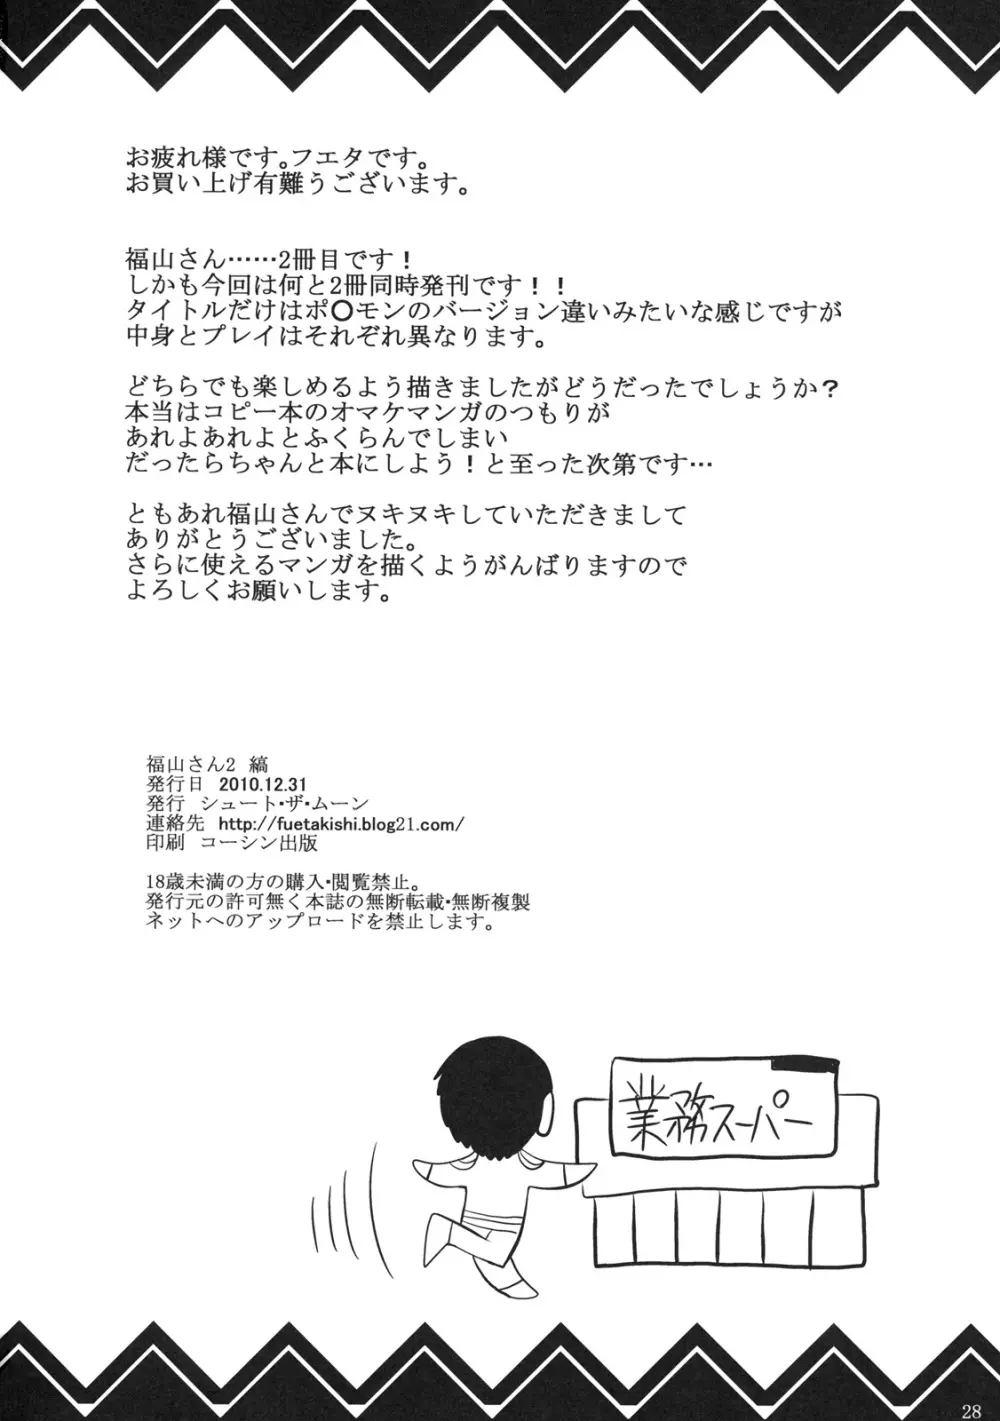 お疲れ様です。フエタです。
お買い上げ有難うございます。
福山さん……2冊目です！
しかも今回は何と2冊同時発刊です！！
タイトルだけはポ〇モンのバージョン違いみたいな感じですが
中身とプレイはそれぞれ異なります。
どちらでも楽しめるよう描きましたがどうだったでしょうか？
本当はコピー本のオマケマンガのつもりが
あれよあれよとふくらんでしまい
だったらちゃんと本にしよう！と至った次第です…
ともあれ福山さんでヌキヌキしていただきまして
ありがとうございました。
さらに使えるマンガを描くようがんばりますので
よろしくお願いします。
福山さん2 縞
発行日 2010.12.31
発行 シュート・ザ・ムーン
連絡先 http://fuetakishi.blog21.com/
印刷 コーシン出版
18歳未満の方の購入・閲覧禁止。
発行元の許可無く本誌の無断転載・無断複製
ネットへのアップロードを禁止します。
業務スーパー
28